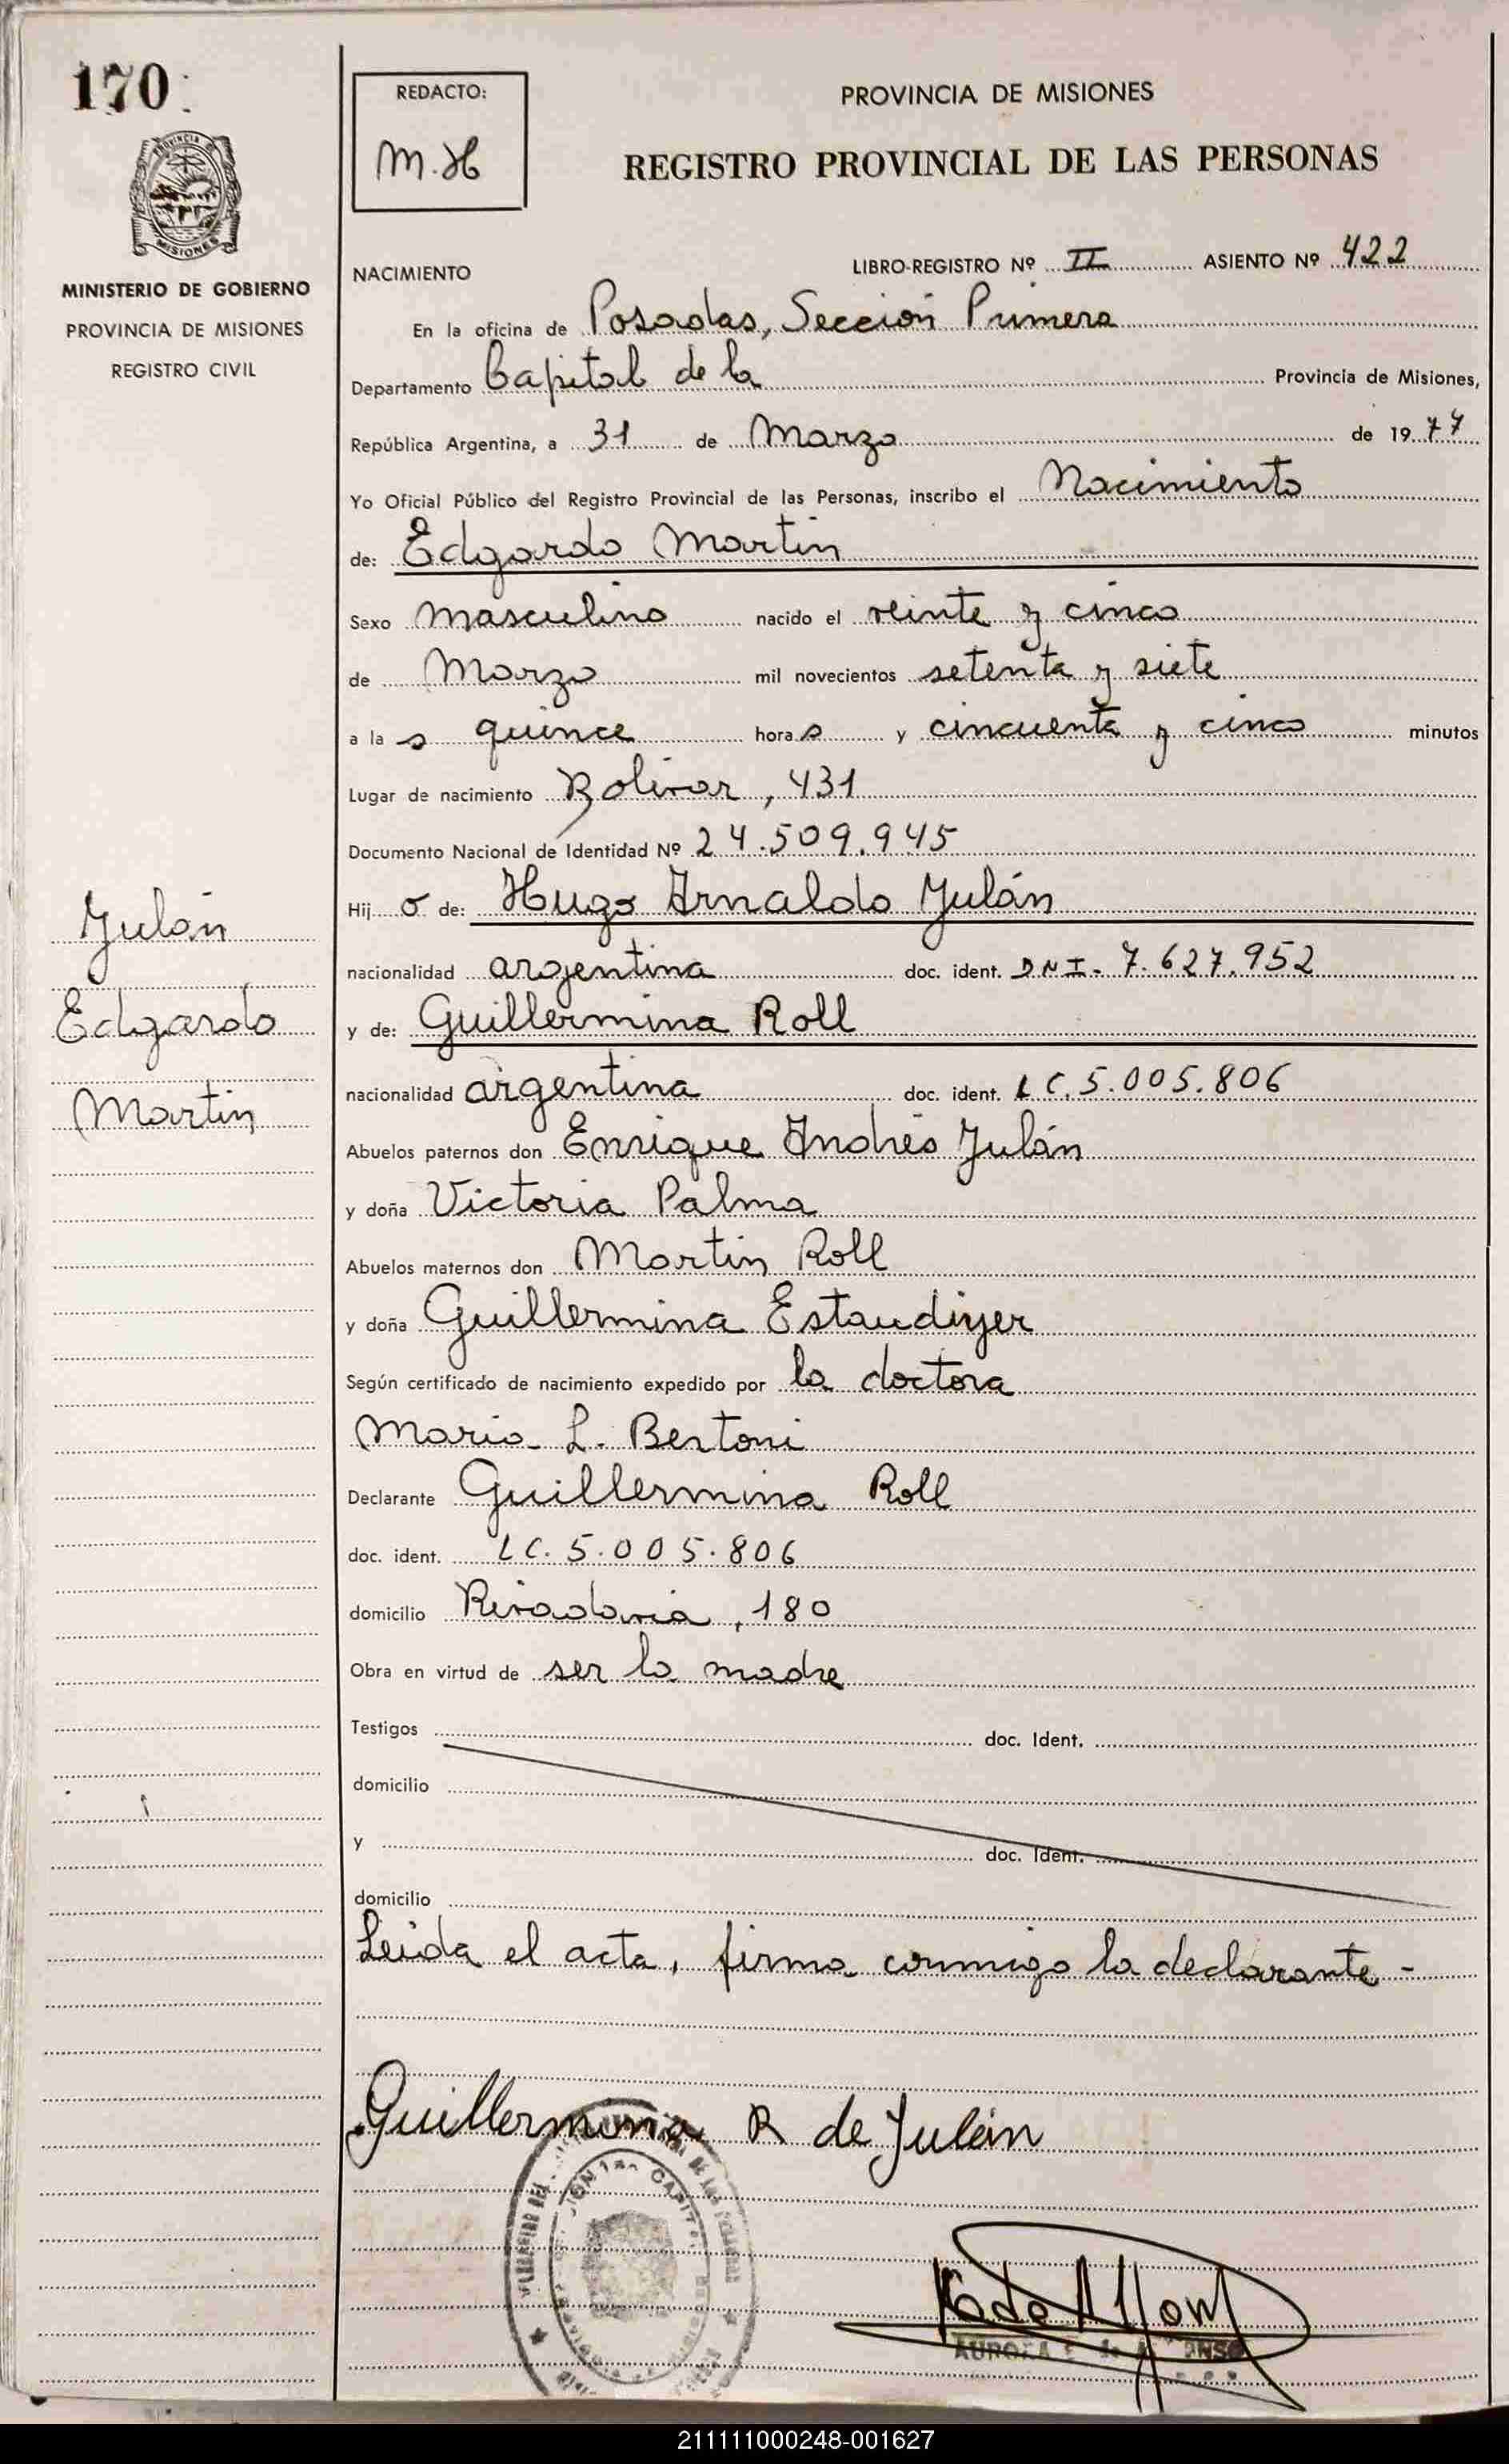 170
REDACTO:
M.H
PROVINCIA DE MISIONES
REGISTRO PROVINCIAL DE LAS PERSONAS
PROVINCIA DE
MISIONES
MINISTERIO DE GOBIERNO
PROVINCIA DE MISIONES
REGISTRO CIVIL
NACIMIENTO
LIBRO-REGISTRO Nº II ASIENTO Nº 422
En la oficina de Posadas, Sección Primera
Departamento Capital de la Provincia de Misiones,
República Argentina, a 31 de Marzo de 1977
Yo Oficial Público del Registro Provincial de las Personas, inscribo el Nacimiento
de: Edgardo Martin
Sexo masculino nacido el veinte y cinco
de Marzo mil novecientos setenta y siete
a la s quince hora s y cincuenta y cinco minutos
Lugar de nacimiento Bolivar, 431
Documento Nacional de Identidad Nº 24.509.945
Hij o de: Hugo Arnaldo Julán
nacionalidad argentina doc. ident. DNI- 7.627.952
y de: Guillermina Roll
nacionalidad argentina doc. ident. LC. 5.005.806
Abuelos paternos don Enrique Andrés Julán
y doña Victoria Palma
Abuelos maternos don Martin Roll
y doña Guillermina Estaudiyer
Según certificado de nacimiento expedido por la doctora
Maria L. Bertoni
Declarante Guillermina Roll
doc. ident. LC. 5.005.806
domicilio Rivadavia, 180
Obra en virtud de ser la madre
Testigos doc. Ident.
domicilio
y doc. Ident.
domicilio
Leida el acta, firma conmigo la declarante -
Julán
Edgardo
Martin
Guillermina R de Julán
AURORA
211111000248-001627